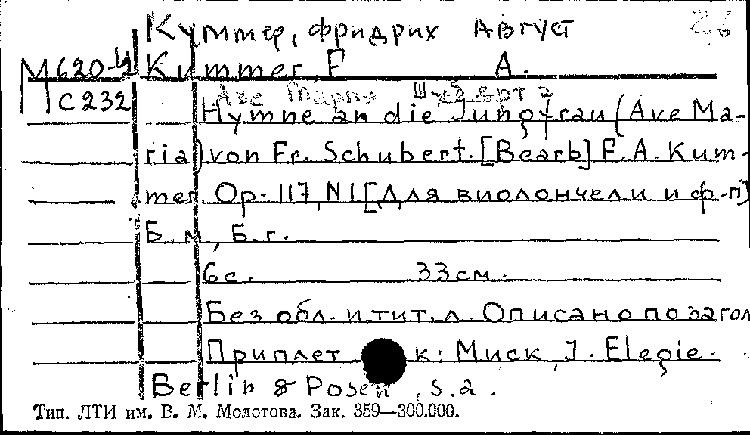 Куммер, Фридрих Август
Kummer, F. A.
М620-4
С232
Аве Мария Шуберта
Hymne an die Jungfrau (Ave Ma-
ria) von Fr. Schubert. [Bearb] F. A. Kum-
mer. Op. 117, N1. [Для виолончели и ф-п]
Б. м., Б. г.
6 с. 33 см.
Без обл. и тит. л. Описано по загол
Приплет к: Миск, J. Elegie.
Berlin & Posen, s. a.
Тип. ЛТИ им. В. М. Молотова. Зак. 359—300.000.